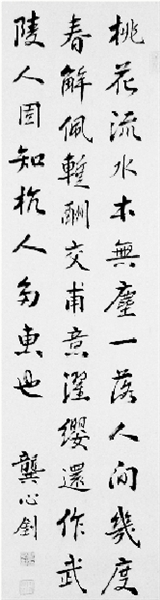 桃花流水本無塵一落人間幾度
春解佩暫酬交甫意濯纓還作武
陵人固知杭人多惠也
龔心釗